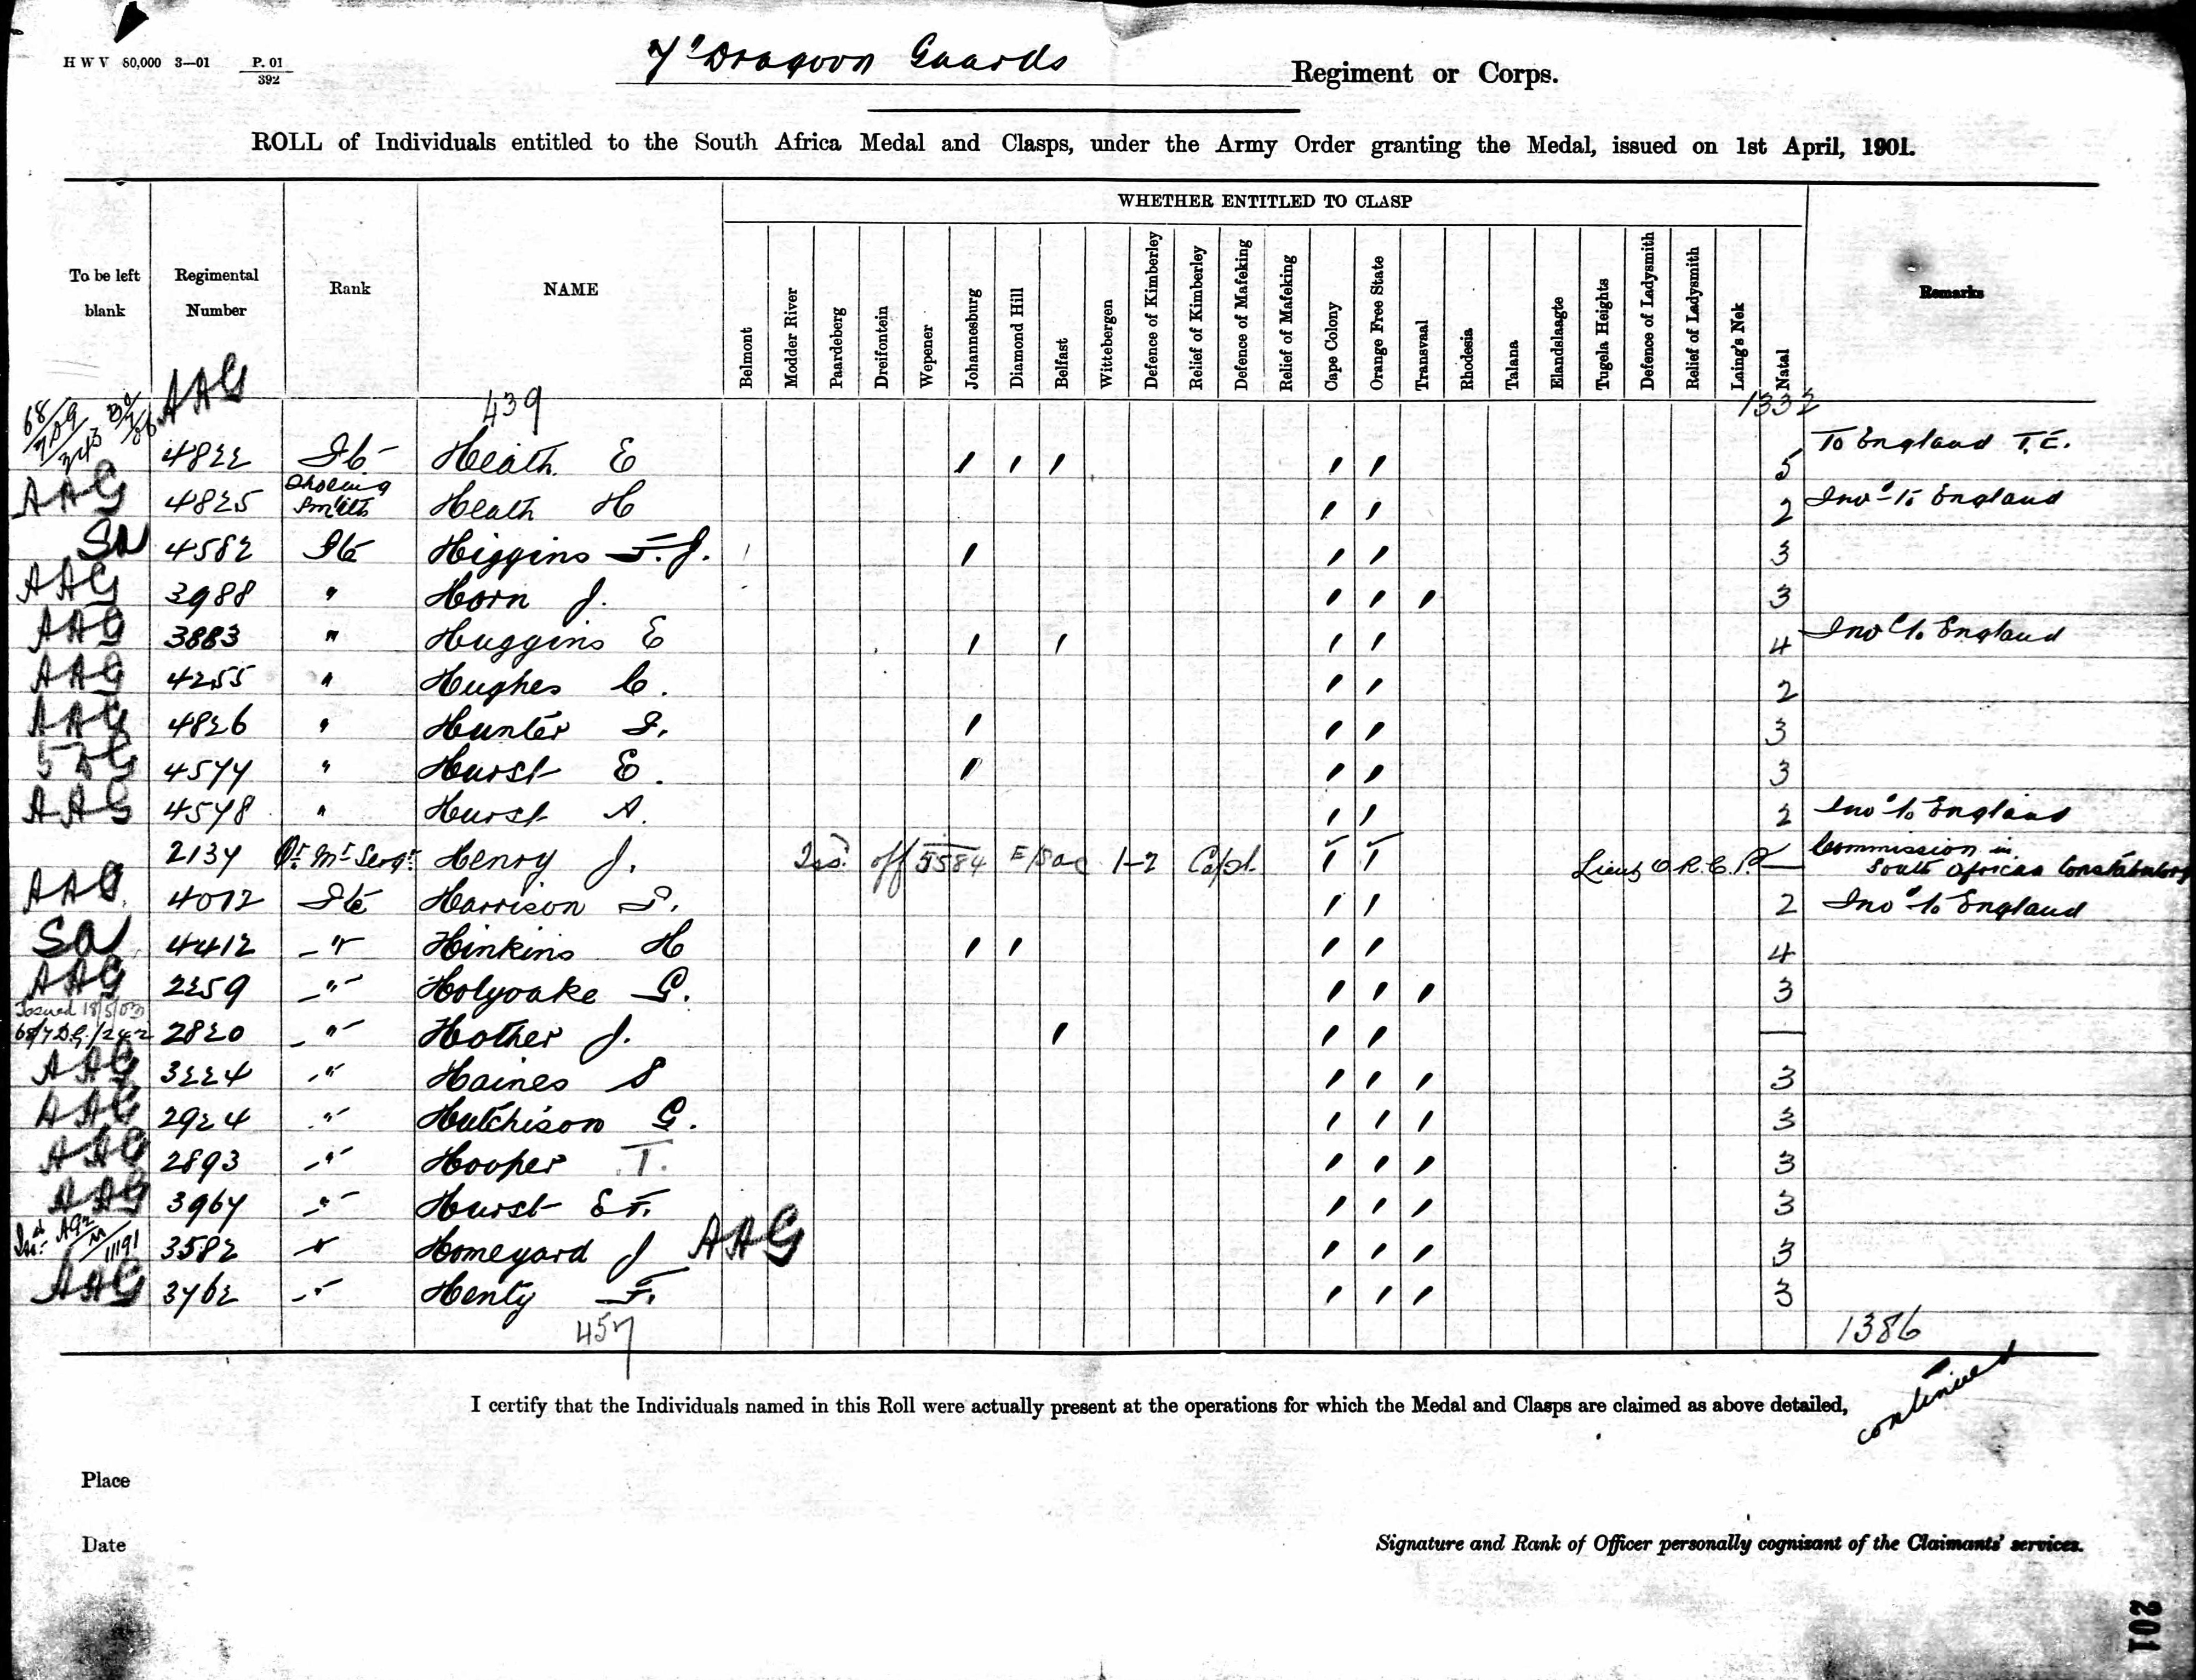 H W V 80,000 3—01 P. 01
392
7' Dragoon Guards Regiment or Corps.
ROLL of Individuals entitled to the South Africa Medal and Clasps, under the Army Order granting the Medal, issued on 1st April, 1901.
WHETHER ENTITLED TO CLASP
To be left blank
Regimental Number
Rank
NAME
Belmont
Modder River
Paardeberg
Dreifontein
Wepener
Johannesburg
Diamond Hill
Belfast
Wittebergen
Defence of Kimberley
Relief of Kimberley
Defence of Mafeking
Relief of Mafeking
Cape Colony
Orange Free State
Transvaal
Rhodesia
Talana
Elandslaagte
Tugela Heights
Defence of Ladysmith
Relief of Ladysmith
Laing's Nek
Natal
Remarks
AAG 439 1332
4822 Pte Heath E 5 To England T.E.
AAG 4825 Shoeing Smith Heath H 2 Invd to England
SA 4582 Pte Higgins F. J. 3
AAG 3988 " Horn J. 3
AAG 3883 " Huggins E 4 Invd to England
AAG 4255 " Hughes C. 2
AAG 4826 " Hunter 3
5DG 4577 " Hurst E. 3
AAG 4578 " Hurst A. 2 Invd to England
2137 Qr Mr Sergt Henry J. off 5584 E/Sac 1-2 Capt. Lieut O.R.C.P. Commission in South African Constabulary
AAG 4012 Pte Harrison 2 Invd to England
SA 4412 " Hinkins H 4
AAG 2259 " Holyoake G. 3
Issued 18/5/03
68/7 D.G./242 2820 " Hother J. —
AAG 3224 " Haines S 3
AAG 2924 " Hutchison G. 3
AAG 2893 " Hooper T. 3
AAG 3967 " Hurst E F. 3
3582 " Homeyard J AAG 3
AAG 3762 " Henty F. 3
457 1386
continued
I certify that the Individuals named in this Roll were actually present at the operations for which the Medal and Clasps are claimed as above detailed,
Place
Date
Signature and Rank of Officer personally cognizant of the Claimants' services.
201